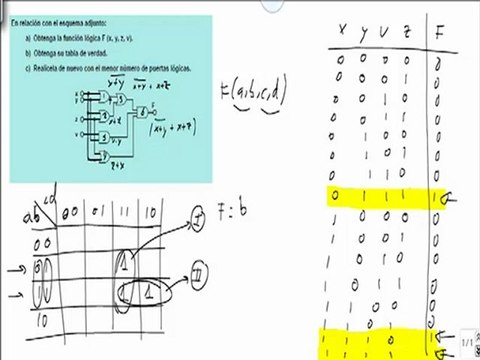 En relación con el esquema adjunto:
a) Obtenga la función lógica F (x, y, z, v).
b) Obtenga su tabla de verdad.
c) Realícela de nuevo con el menor número de puertas lógicas.
F(a,b,c,d)
x y v z F
0 0 0 0 0
0 0 0 1 0
0 0 1 0 0
0 0 1 1 0
0 1 0 0 0
0 1 0 1 0
0 1 1 0 0
0 1 1 1 1
1 0 0 0 0
1 0 0 1 0
1 0 1 0 0
1 0 1 1 0
1 1 0 0 0
1 1 0 1 0
1 1 1 0 1
ab cd 00 01 11 10
00
01 1
11 1 1
10
I
II
F = b
1/1